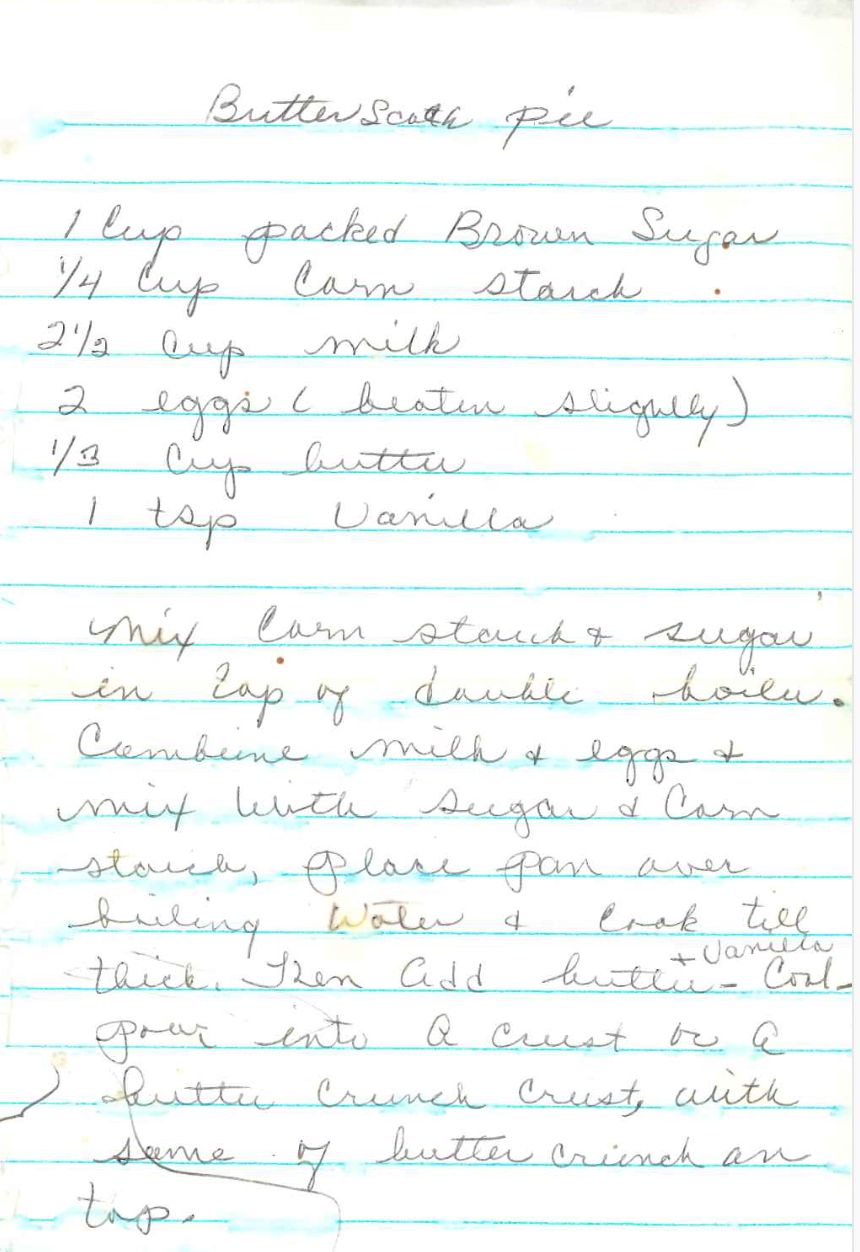 Butter Scotch pie
1 Cup packed Brown Sugar
1/4 Cup Corn starch
2 1/2 Cup milk
2 eggs ( beaten slightly)
1/3 Cup butter
1 tsp Vanilla
Mix Corn starch & sugar
in top of double boiler.
Combine milk & eggs &
mix with sugar & Corn
starch, place pan over
boiling water & cook till
thick. Then add butter + Vanilla - Cool -
pour into a crust or a
butter crunch crust, with
some of butter crunch on
top.